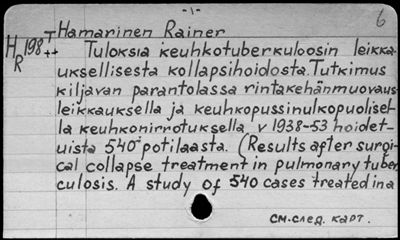 -1-
6
Hamarinen Rainer
H 198 T
R ++
Tuloksia keuhkotuberkuloosin leikka-
uksellisesta kollapsihoidosta. Tutkimus
kiljavan parantolassa rintakehänmuovaus-
leikkauksella ja keuhkopussinulkopuolisel-
la keuhkonirrotuksella v 1938-53 hoidet-
uista 540 potilaasta. (Results after surgi-
cal collapse treatment in pulmonary tuber
culosis. A study of 540 cases treated in a
см. след. карт.